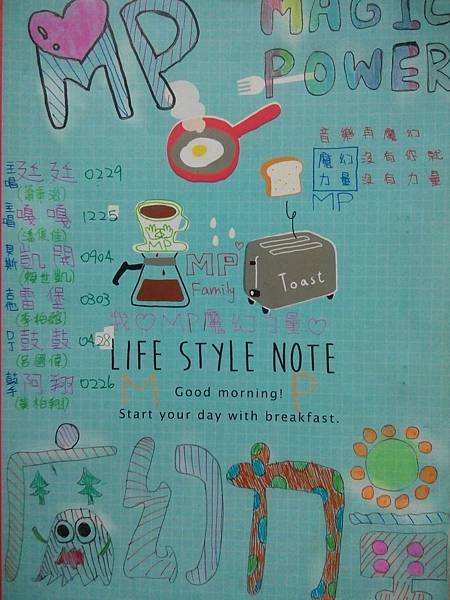 MP
MAGIC
POWER
音樂再魔幻
魔幻 沒有你就
力量 沒有力量
MP
主唱 廷廷 0229
主唱 嘎嘎 1225
貝斯 凱開 0904
(賴世凱)
吉他 雷堡 0303
DJ 鼓鼓 0428
(呂國偉)
鼓手 阿翔 0226
(黃柏翔)
MP
MP
Family
Toast
我♡MP魔幻力量♡
LIFE STYLE NOTE
M P
Good morning!
Start your day with breakfast.
魔幻力量